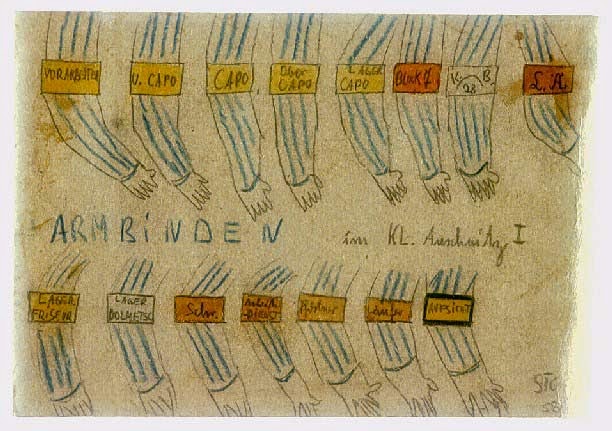 VORARBEITER
U. CAPO
CAPO
Ober
CAPO
LAGER
CAPO
BLOCK 7
K. B.
28
L. A
ARMBINDEN
im KL. Auschwitz I
LAGER
FRISEUR
LAGER
DOLMETSC
Schr.
Arbeits
-DIENST
Pförtner
Läufer
AUFSICHT